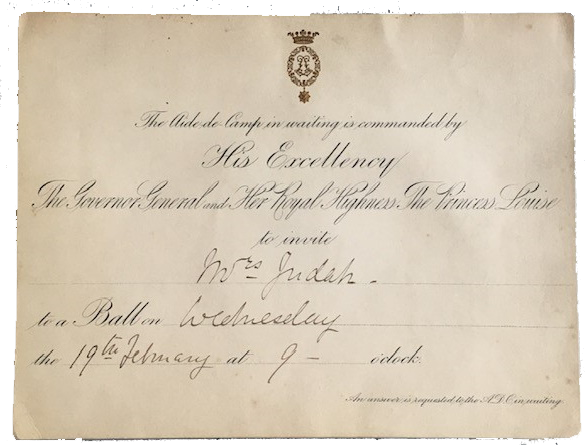 The Aide-de-Camp in waiting is commanded by
His Excellency
The Governor General and Her Royal Highness The Princess Louise
to invite
Mrs Judah -
to a Ball on Wednesday
the 19th February at 9 - o'clock.
An answer is requested to the A.D.C in waiting